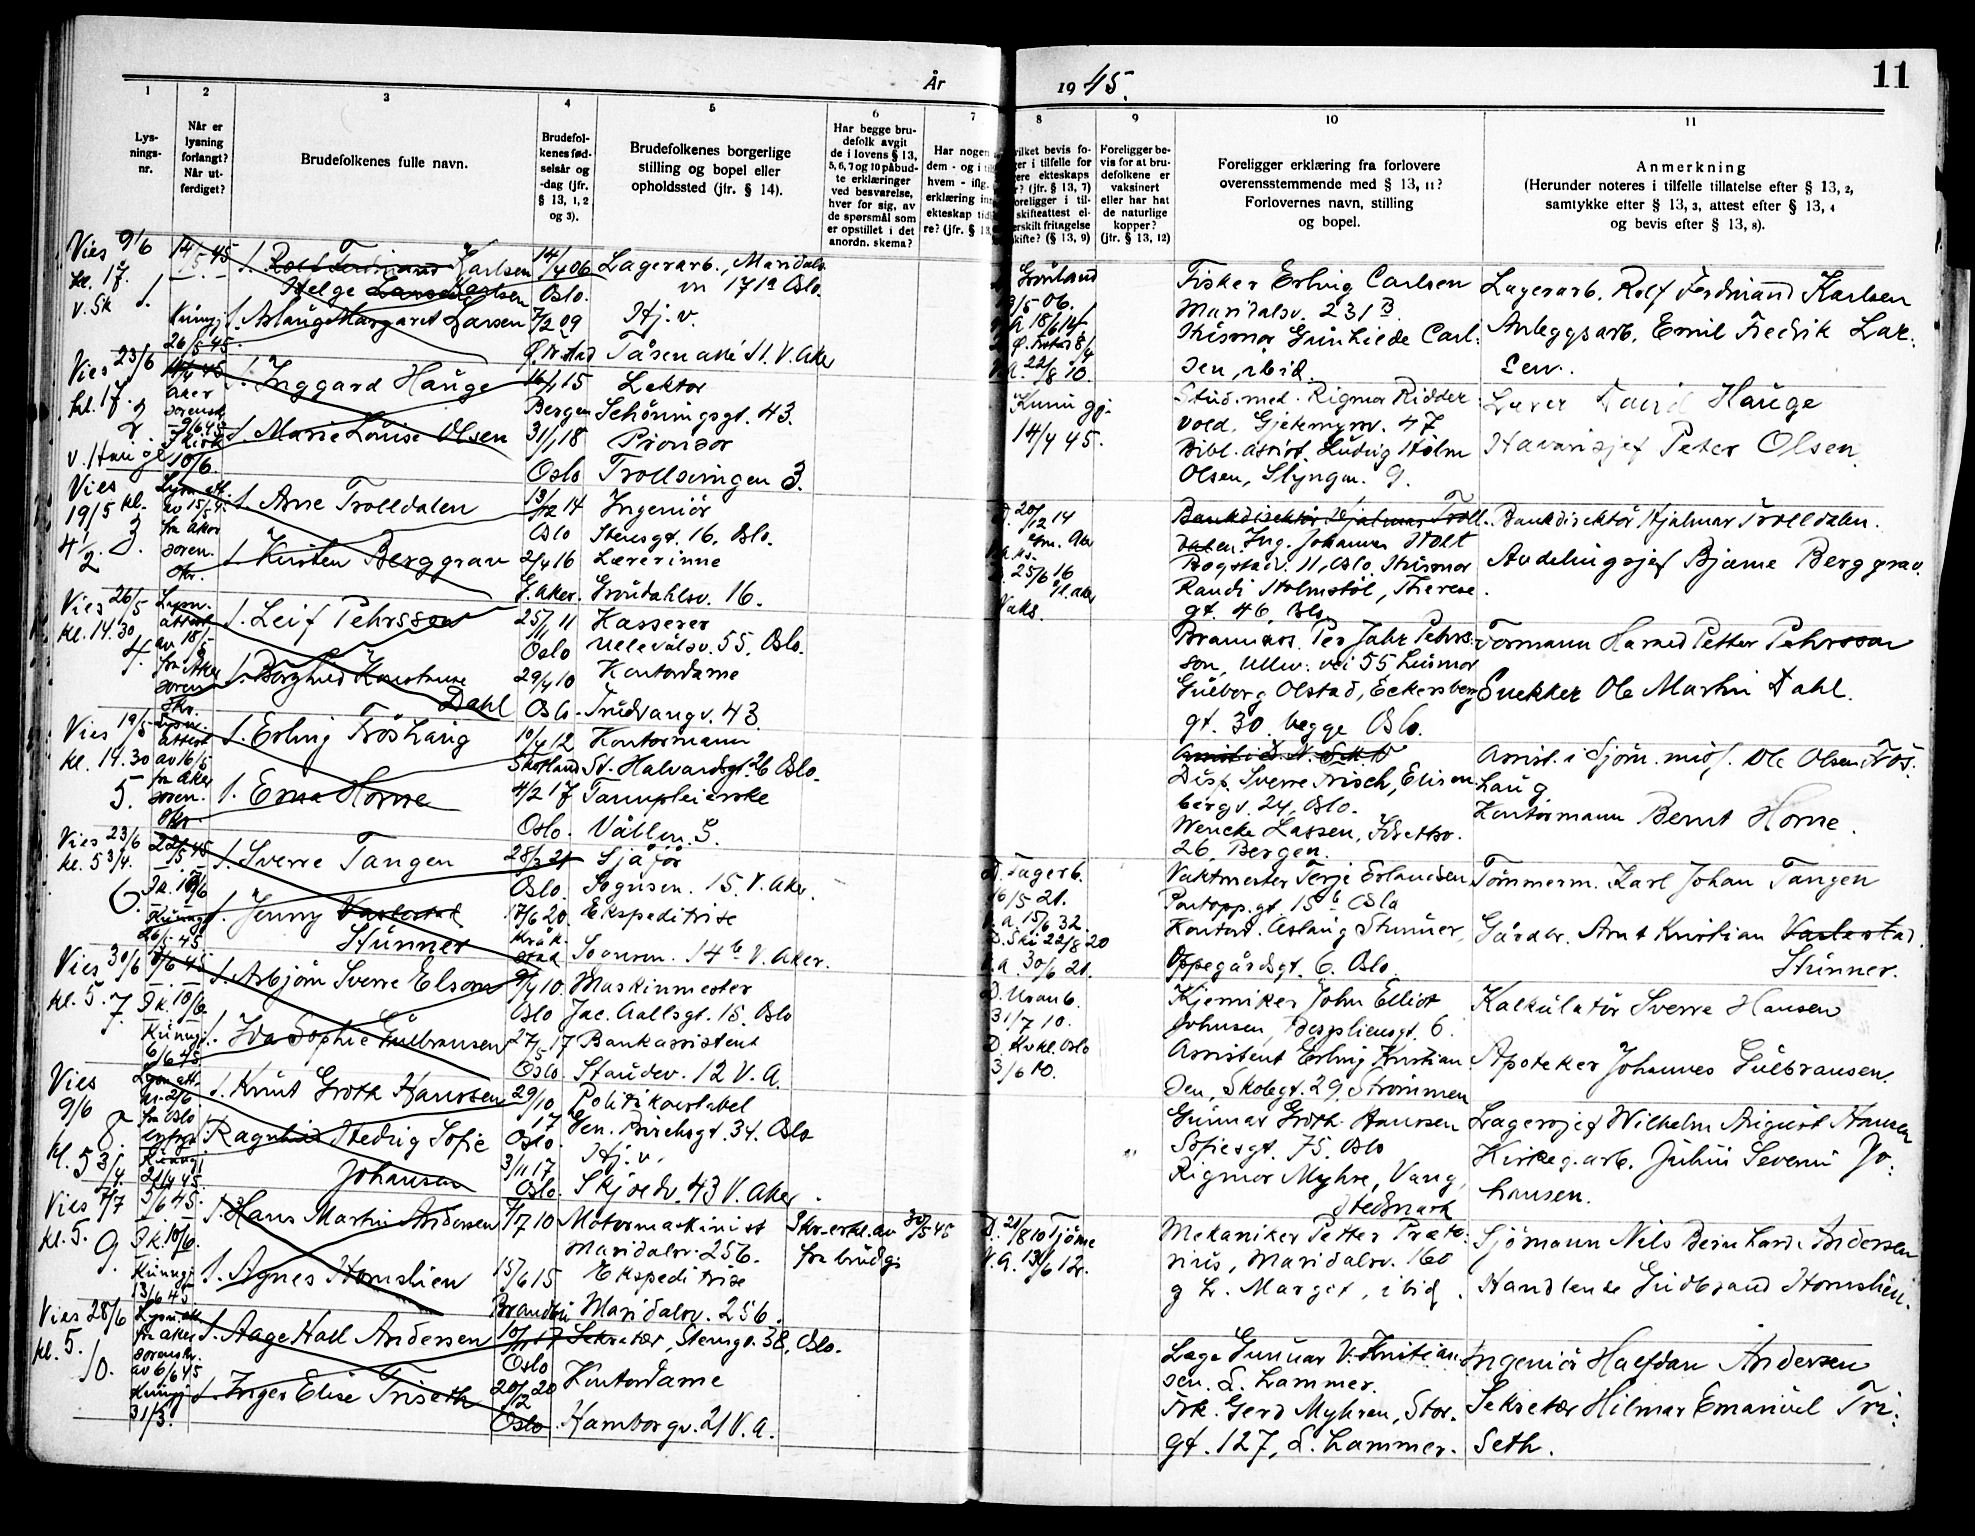 År 1945.
11
1 2 3 4 5 6 7 8 9 10 11
Lys-
nings-
nr.
Når er
lysning
forlangt?
Når ut-
ferdiget?
Brudefolkenes fulle navn.
Brudefol-
kenes fød-
selsår og
-dag (jfr.
§ 13, 1, 2
og 3).
Brudefolkenes borgerlige
stilling og bopel eller
opholdssted (jfr. § 14).
Har begge bru-
defolk avgit
de i lovens § 13,
5, 6, 7 og 10 påbud-
te erklæringer
ved besvarelse,
hver for sig, av
de spørsmål som
er opstillet i det
anordn. skema?
Har nogen
dem - og i
hvem - iflg.
erklæring
ekteskap
re? (jfr. § 13,
vilket bevis fo-
ger i tilfelle for
ere ekteskaps
r? (jfr. § 13, 7)
oreligger i til-
skifteattest el-
erskilt fritagelse
kifte? (§ 13, 9)
Foreligger be-
vis for at bru-
defolkene er
vaksinert
eller har hat
de naturlige
kopper?
(jfr. § 13, 12)
Foreligger erklæring fra forlovere
overensstemmende med § 13, 11?
Forlovernes navn, stilling
og bopel.
Anmerkning
(Herunder noteres i tilfelle tillatelse efter § 13, 2,
samtykke efter § 13, 3, attest efter § 13, 4
og bevis efter § 13, 8).
Vies 9/6
kl. 17.
v. Sk
1.
14/5 45
26/5 45.
S. Rolf Ferdinand Karlsen
Helge Larsen Karlsen
S. Aslaug Margaret Larsen
14/4 06
Oslo.
7/2 09
Lagerarb., Maridalsv
171a Oslo.
Hj. v.
Tåsen allé 11. V. Aker
Grønland
Fisker Erling Carlsen
Maridalsv. 231 B
Husmor Gunhilde Carl-
sen, ibid.
Lagerarb. Rolf Ferdinand Karlsen
Anleggsarb. Emil Fredrik Lar-
sen.
Vies 23/6
kl. 17.
2.
v. Hauge
Aker
sorensk.
9/6 45
10/6.
S. Inggard Hauge
S. Marie Louise Olsen
16/1 15
Bergen
31/1 18
Oslo
Lektor
Schöningsgt. 43.
Provisor
Trollsvingen 3.
14/4 45.
Stud. med. Rigmor Ridder
vold, Gjetemyrsv. 47
Bibl. assist. Ludvig Holm
Olsen, Slyngv. 9.
Lærer David Hauge
Havarisjef Peter Olsen
Vies
19/5 kl.
4 1/2
3.
Lysn. att.
av 15/5 45
fra Aker
soren.
skr.
S. Arne Trolldalen
S. Kirsten Berggrav
13/12 14
Oslo
2/4 16
G. Aker.
Ingeniör
Stensgt. 16, Oslo.
Lærerinne
Gröndahlsv. 16.
20/12 14
25/6 16
Vaks.
Bankdirektör Hjalmar Troll-
dalen. Ing. Johannes Holt
Bogstadv. 11, Oslo, Husmor
Randi Holmstöl, Therese-
gt. 46, Oslo.
Bankdirektör Hjalmar Trolldalen.
Avdelingssjef Bjarne Berggrav.
Vies 26/5
kl. 14.30
4.
Lysn.
attest
av 18/5
fra Aker
soren
skr.
S. Leif Pehrsson
S. Borghild Konstanse
Dahl
25/11 11
Oslo
29/4 10
Oslo.
Kasserer
Ullevålsv. 55, Oslo.
Kontordame
Trudvangv. 43
Pehrs-
son, Ullev. vei 55 husmor
Gulborg Olstad, Eckersberg
gt. 30. begge Oslo.
Formann Harald Petter Pehrsson
Snekker Ole Martin Dahl.
Vies 19/5
kl. 14.30
5.
Lysn.
attest
av 16/5
fra Aker
soren.
skr.
S. Erling Fröshaug
S. Erna Horne
10/4 12
4/2 17
Oslo.
Kontormann
St. Halvardsgt. 26 Oslo.
Tannpleierske
Vållyv. 5.
Disp. Sverre Frisch, Elisen
bergv. 24, Oslo.
Wencke Lassen,
26, Bergen.
Assist. i Sjöm. misj. Ole Olsen Frös-
haug
Kontormann Bernt Horne.
Vies 23/6
kl. 5 3/4.
6.
22/5 45
26/5 45
S. Sverre Tangen
S. Jenny Vaslestad
Stünner
28/3 21
Oslo.
17/6 20.
Kråk-
stad
Sjåför
Sognsv. 15. V. Aker.
Ekspeditrise
Sognsv. 14b V. Aker.
D. Fagerb.
16/5 21.
V.a. 15/6 32.
D. Ski 22/8 20
V.a. 30/6 21.
Vaktmester Terje Erlandsen
Pontopp.gt 15b Oslo
Kontord. Aslaug Stünner,
Oppegårdsgt. 6. Oslo.
Tömmerm. Karl Johan Tangen
Gårdbr. Arnt Kristian Vaslestad.
Stünner.
Vies 30/6
kl. 5.
7.
10/6.
6/6 45
S. Asbjörn Sverre Elson
S. Ida Sophie Gulbransen
9/4 10.
Oslo
27/5 17
Oslo.
Maskinmester
Jac. Aallsgt. 15. Oslo
Bankassistent
Staudev. 12 V. A.
D. Uranb.
31/7 10.
D. Oslo
3/6 10.
Kjemiker John Elliot
Johnsen, gt. 6.
Assistent Erling Kristian
sen, Skolegt. 29, Strömmen
Kalkulatör Sverre Hansen
Apoteker Johannes Gulbransen.
Vies
9/6
kl. 5 3/4.
8.
Lysn. att.
av 2/6
fra Oslo
byfogd
21/4 45.
S. Knut Groth Hanssen
Ragnhild Hedvig Sofie
Johansen
29/10
17
Oslo.
3/11 17
Oslo.
Politikonstabel
Gen. Birchsgt. 34. Oslo
Hj. v.
Skjoldv. 43 V. Aker
Gunnar Groth Hanssen
Sofiesgt. 75, Oslo
Rigmor Myhre, Vang,
Hedmark
Lagersjef Wilhelm August Hansen
Kirkeg. arb. Julius Severin Jo-
hansen.
Vies 7/7
kl. 5.
9.
5/6 45.
10/6.
13/6 45
S. Hans Martin Andersen
S. Agnes Hornslien
7/7 10
15/6 15
Brandbu
Motormaskinist
Maridalsv. 256.
Ekspeditrise
Maridalsv. 256.
Skr. erkl. av
fra brudg.
30/5 45
D. 21/8 10 Tjöme
V.A. 13/6 12.
Mekaniker Petter Præto-
rius, Maridalsv. 160
g L. Margit, ibid.
Sjömann Nils Bernhard Andersen
Handlende Gudbrand Hornslien.
Vies 28/6
kl. 5.
10.
Lysn. att.
fra Aker
sorenskr.
av 6/6 45
31/3.
S. Aage Hall Andersen
S. Inger Elise Triseth
10/1 17
Oslo
20/12 20
Oslo
Sekretær, Stensgt. 38, Oslo.
Kontordame
Hamborgv. 21 V. a.
Lage Gunnar V. Kristian-
sen. L. hammer.
Frk. Gerd Myhren, Stor-
gt. 127, L. hammer.
Ingeniör Halfdan Andersen
Sekretær Hilmar Emanuel Tri-
seth.